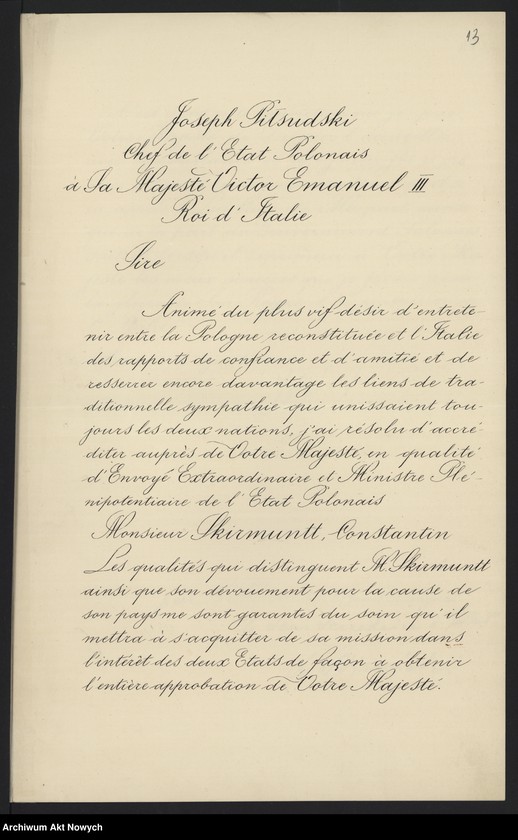 13
Joseph Piłsudski
Chef de l'Etat Polonais
à Sa Majesté Victor Emanuel III
Roi d'Italie
Sire
Animé du plus vif désir d'entrete-
nir entre la Pologne reconstituée et l'Italie
des rapports de confiance et d'amitié et de
resserrer encore davantage les liens de tra-
ditionnelle sympathie qui unissaient tou-
jours les deux nations, j'ai résolu d'accré-
diter auprès de Votre Majesté, en qualité
d'Envoyé Extraordinaire et Ministre Plé-
nipotentiaire de l'Etat Polonais
Monsieur Skirmuntt, Constantin
Les qualités qui distinguent M. Skirmuntt
ainsi que son dévouement pour la cause de
son pays me sont garantes du soin qu'il
mettra à s'acquitter de sa mission dans
l'intérêt des deux Etats de façon à obtenir
l'entière approbation de Votre Majesté.
Archiwum Akt Nowych